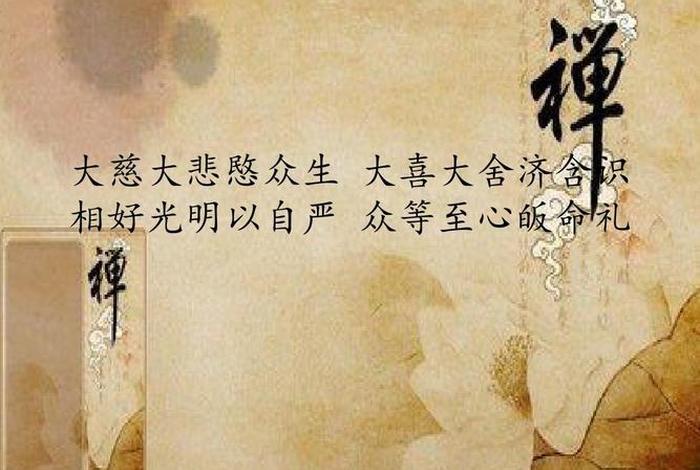 禅
大慈大悲愍众生 大喜大舍济含识
相好光明以自严 众等至心皈命礼
禅